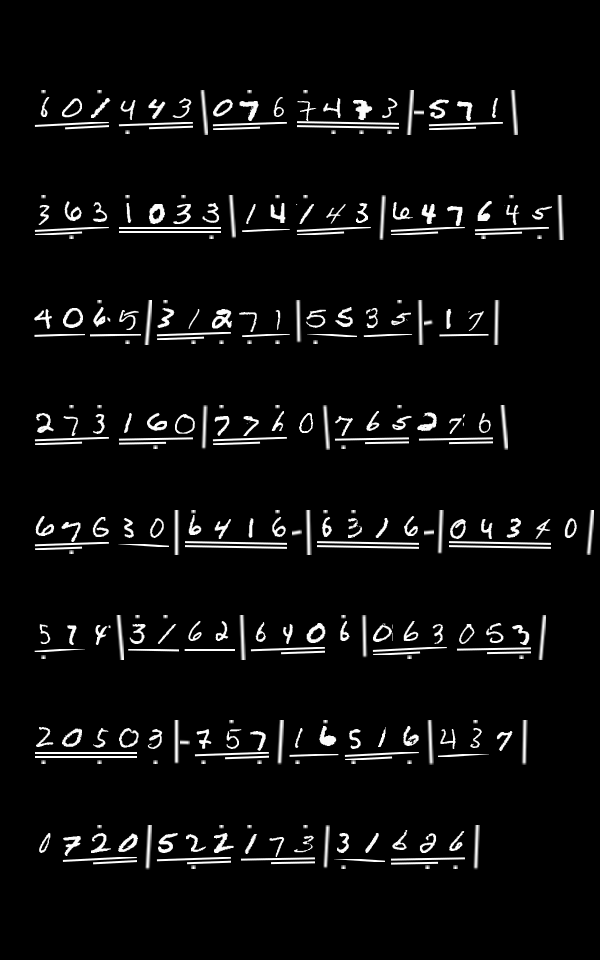 601443|0767473|-571|
3631033|14143|647645|
4065|31271|5535|-17|
273160|7760|765276|
67630|6416-|6316-|04340|
574|3162|6406|063053|
20503|-757|16516|437|
0720|522173|31626|